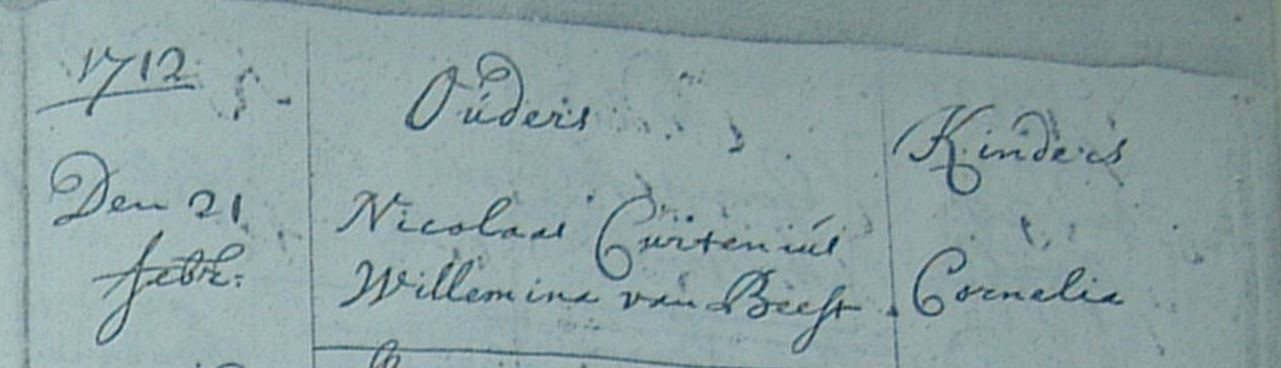 1712
Ouders
Kinders
Den 21
febr:
Nicolaas Curtenius
Willemina van Beest
Cornelia